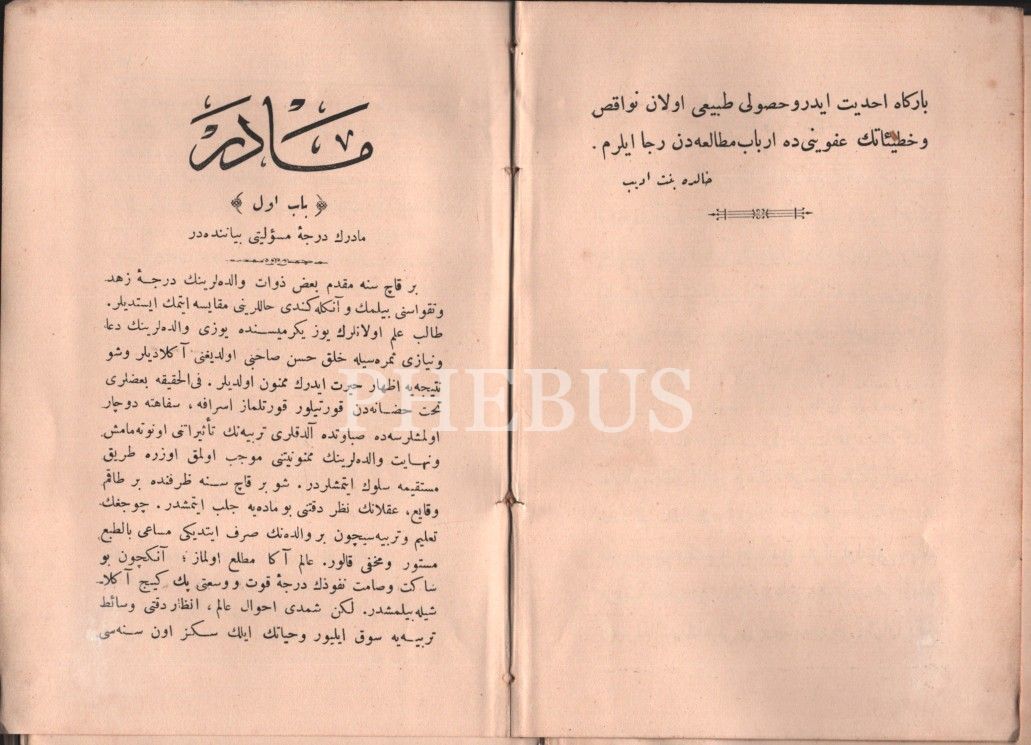 بارکاه احدیت ایدر وحصولی طبیعی اولان نواقص
وخطیئاتك عفوینی ده ارباب مطالعه دن رجا ایلرم .
خالده بنت ادیب
مادر
﴿ باب اول ﴾
مادرك درجۀ مسؤلیتی بیاننده در
بر قاچ سنه مقدم بعض ذوات والده لرینك درجۀ زهد
وتقواسنی بیلمك و آنکله کندی حاللرینی مقایسه ایتمك ایستدیلر .
طالب علم اولانلرك یوز یکرمیسنده یوزی والده لرینك دعا
ونیازی ثمره سیله خلق حسن صاحبی اولدیغنی آکلادیلر وشو
نتیجه یه اظهار حیرت ایدرك ممنون اولدیلر . فی الحقیقه بعضلری
تحت حضانه دن قورتیلور قورتلماز اسرافه ، سفاهته دوچار
اولمشلرسه ده صباوتده آلدقلری تربیه نك تأثیراتنی اونوتمامش
ونهایت والده لرینك ممنونیتنی موجب اولمق اوزره طریق
مستقیمه سلوك ایتمشلردر . شو بر قاچ سنه ظرفنده بر طاقم
وقایع ، عقلانك نظر دقتنی بو ماده یه جلب ایتمشدر . چوجغك
تعلیم وتربیه سیچون بر والده نك صرف ایتدیکی مساعی بالطبع
مستور ومخفی قالور . عالم آکا مطلع اولماز ؛ آنکچون بو
ساکت وصامت نفوذك درجۀ قوت ووسعتی پك کیج آکلا-
شیله بیلمشدر . لکن شمدی احوال عالم ، انظار دقتی وسائط
تربیه یه سوق ایلیور وحیاتك ایلك سکز اون سنه سی
PHEBUS